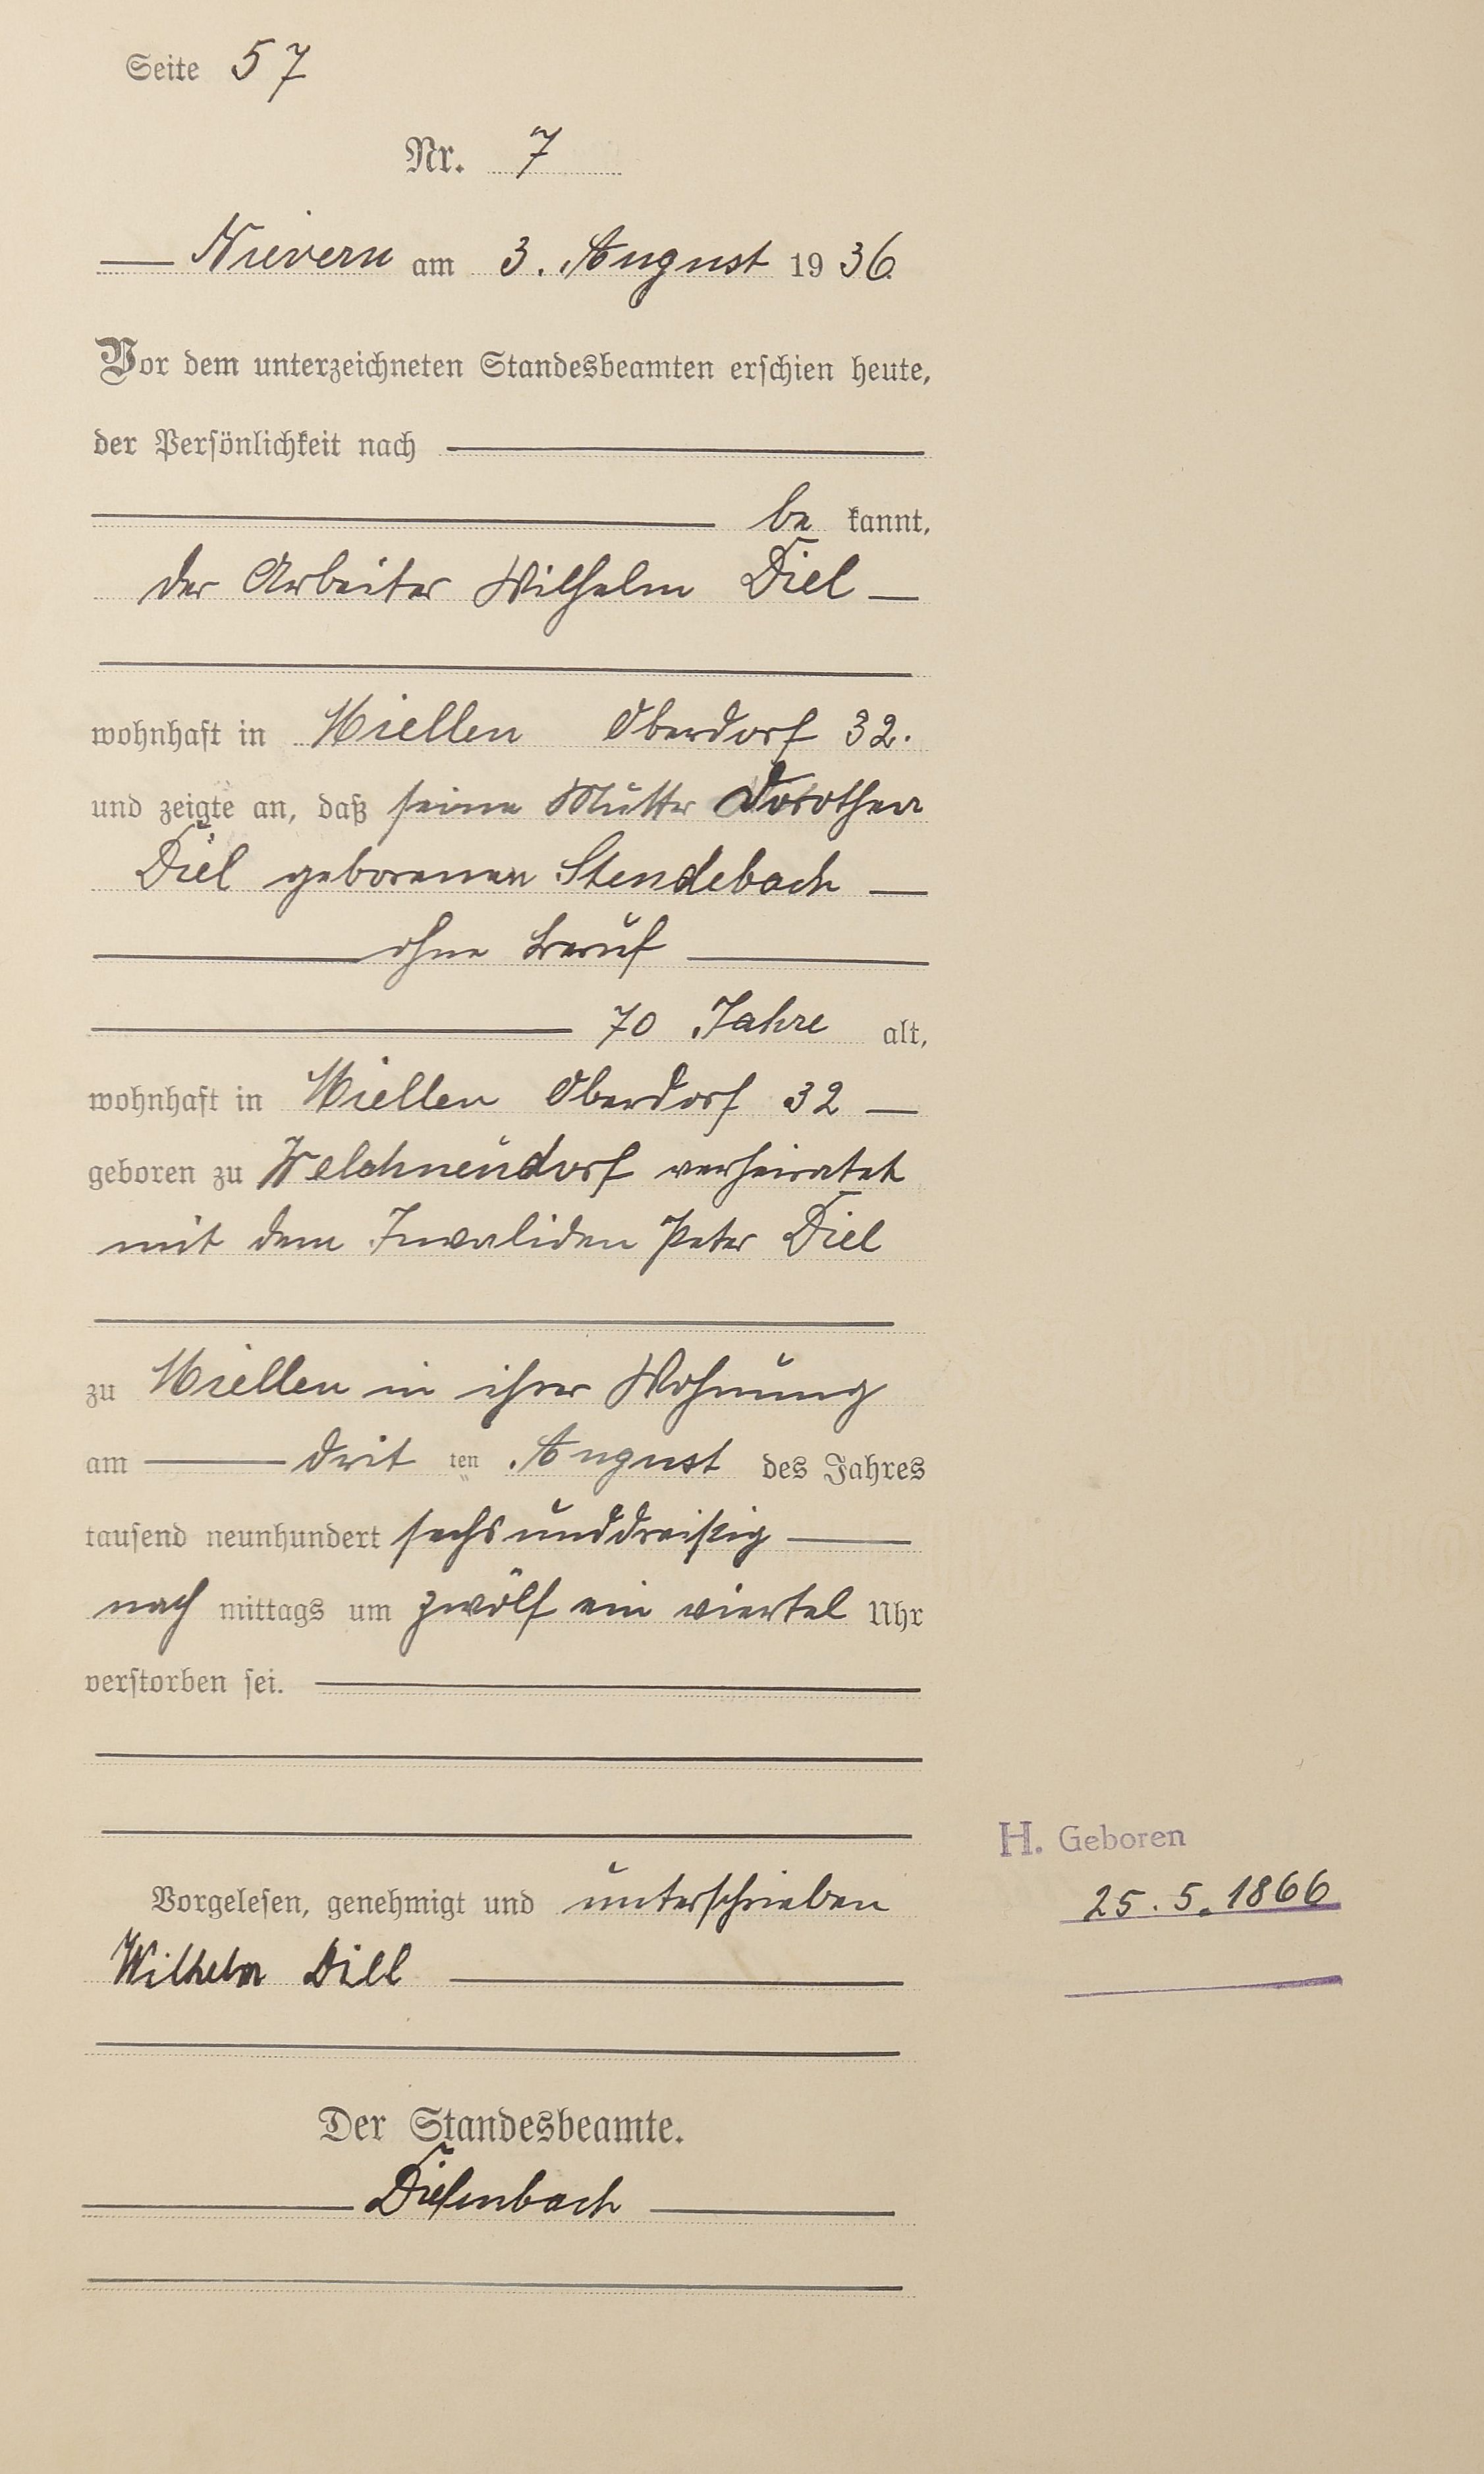 Seite 57
Nr. 7
Nievern am 3. August 1936
Vor dem unterzeichneten Standesbeamten erschien heute,
der Persönlichkeit nach
be kannt,
der Arbeiter Wilhelm Diel
wohnhaft in Miellen Oberdorf 32.
und zeigte an, daß seine Mutter Dorothea
Diel geborenen Stendebach
ohne Beruf
70 Jahre alt,
wohnhaft in Miellen Oberdorf 32
geboren zu Welchneudorf verheiratet
mit dem Invaliden Peter Diel
zu Miellen in ihrer Wohnung
am drit ten August des Jahres
tausend neunhundert sechsunddreißig
nach mittags um zwölf ein viertel Uhr
verstorben sei.
Vorgelesen, genehmigt und unterschrieben
H. Geboren
25. 5. 1866
Wilhelm Diel
Der Standesbeamte.